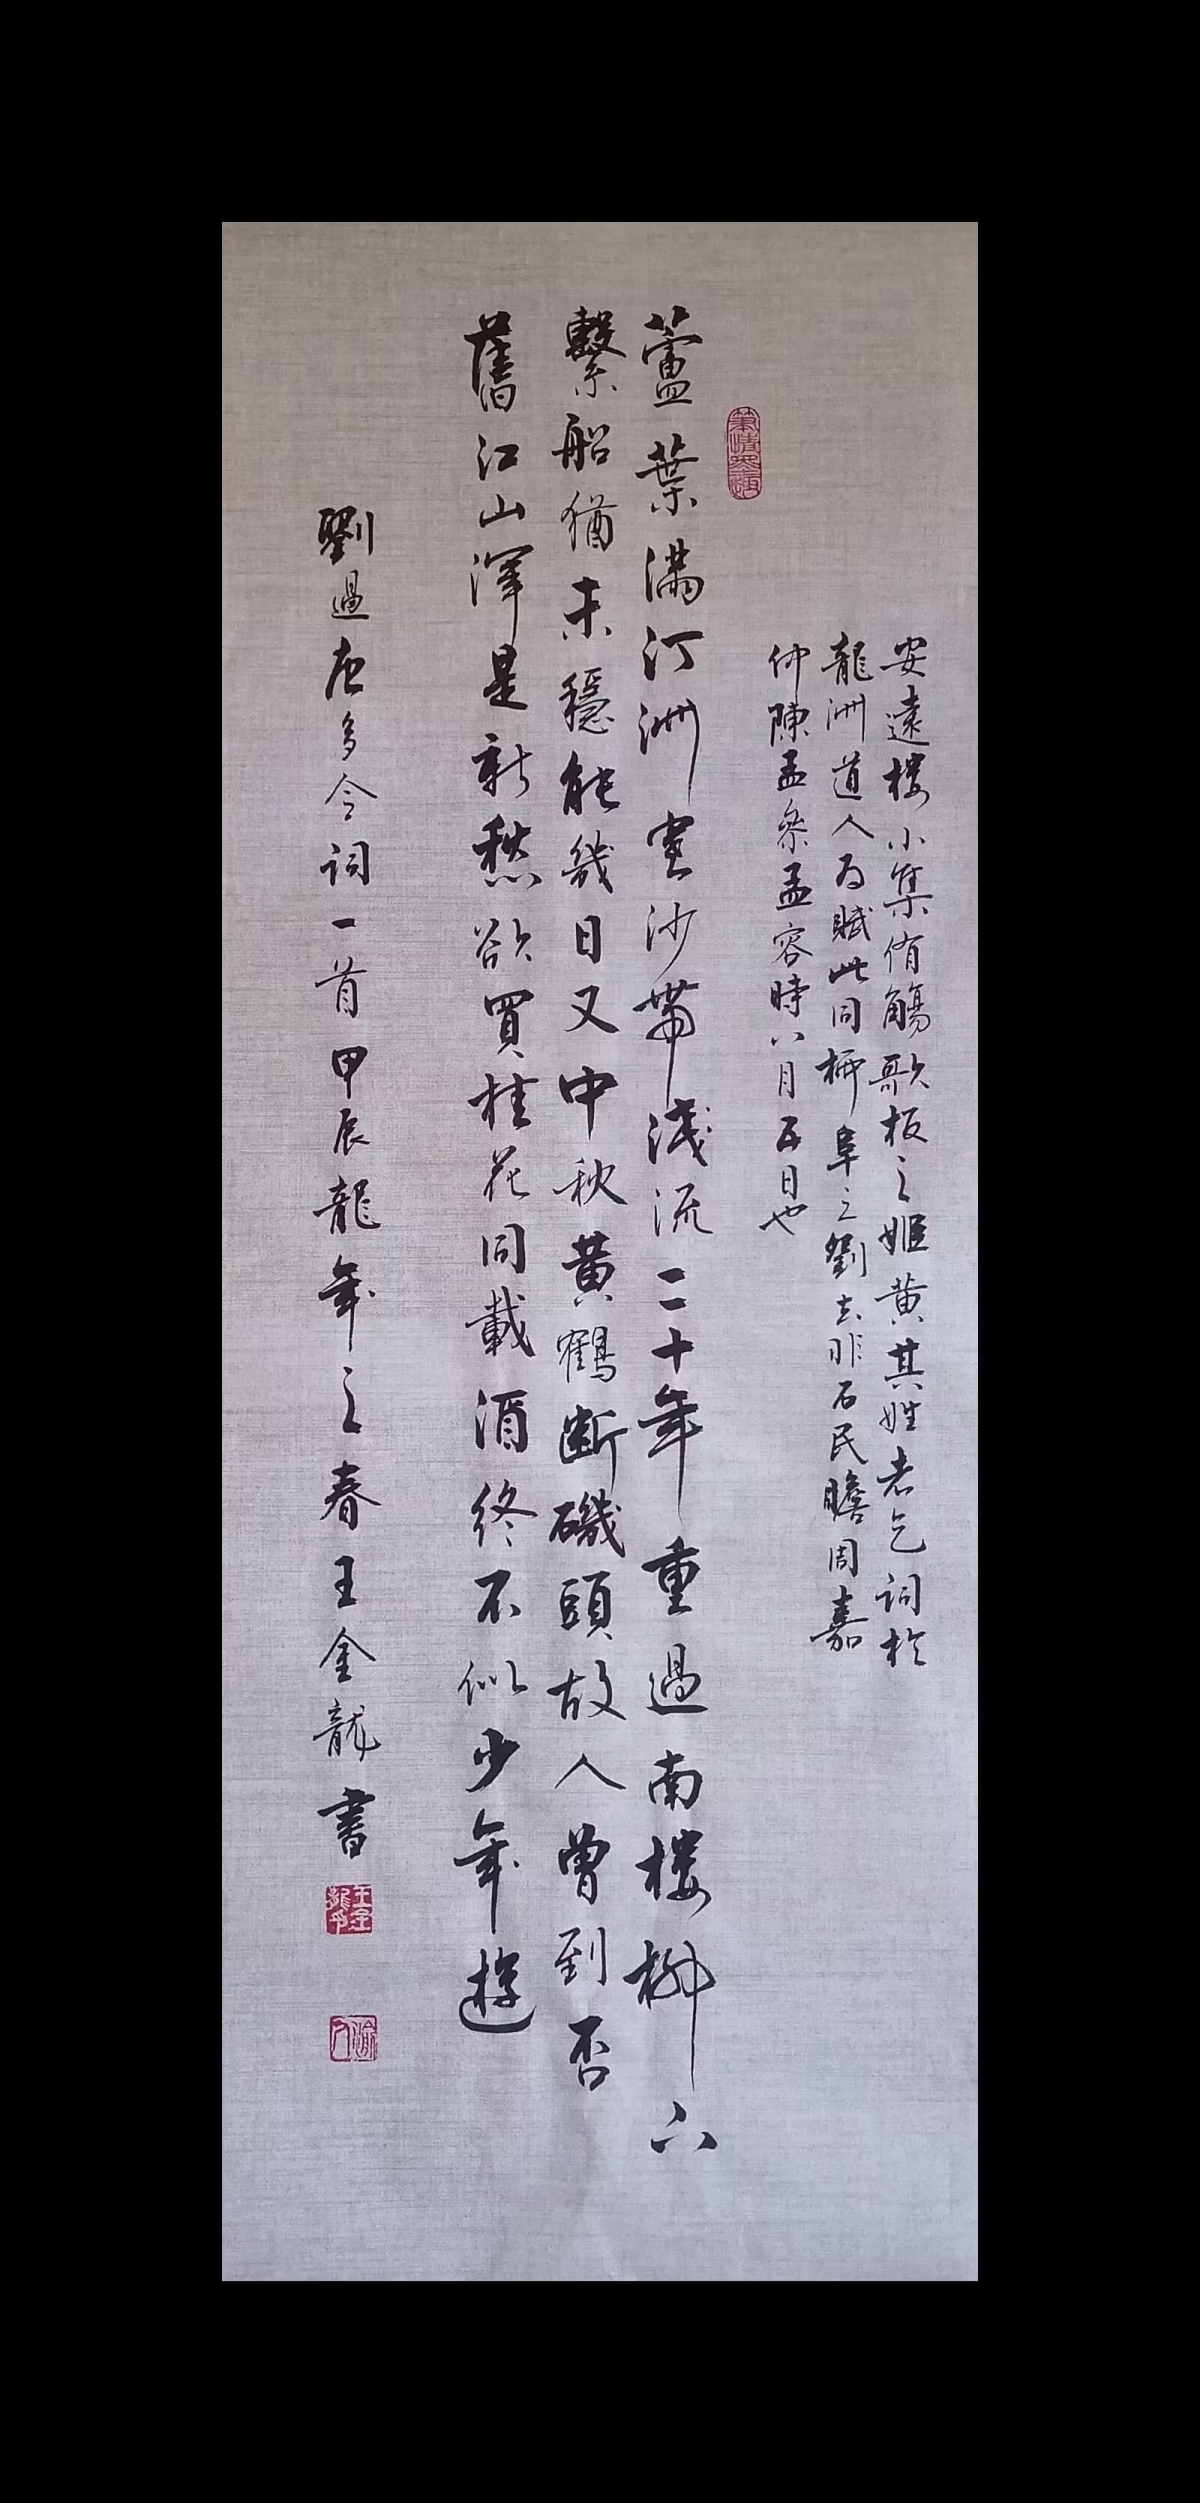 安遠樓小集侑觴歌板之姬黃其姓者乞詞於
龍洲道人為賦此同柳阜之劉去非石民瞻周嘉
仲陳孟參孟容時八月五日也
蘆葉滿汀洲寒沙帶淺流二十年重過南樓柳下
繫船猶未穩能幾日又中秋黃鶴斷磯頭故人曾到否
舊江山渾是新愁欲買桂花同載酒終不似少年遊
劉過唐多令詞一首甲辰龍年之春王金龍書